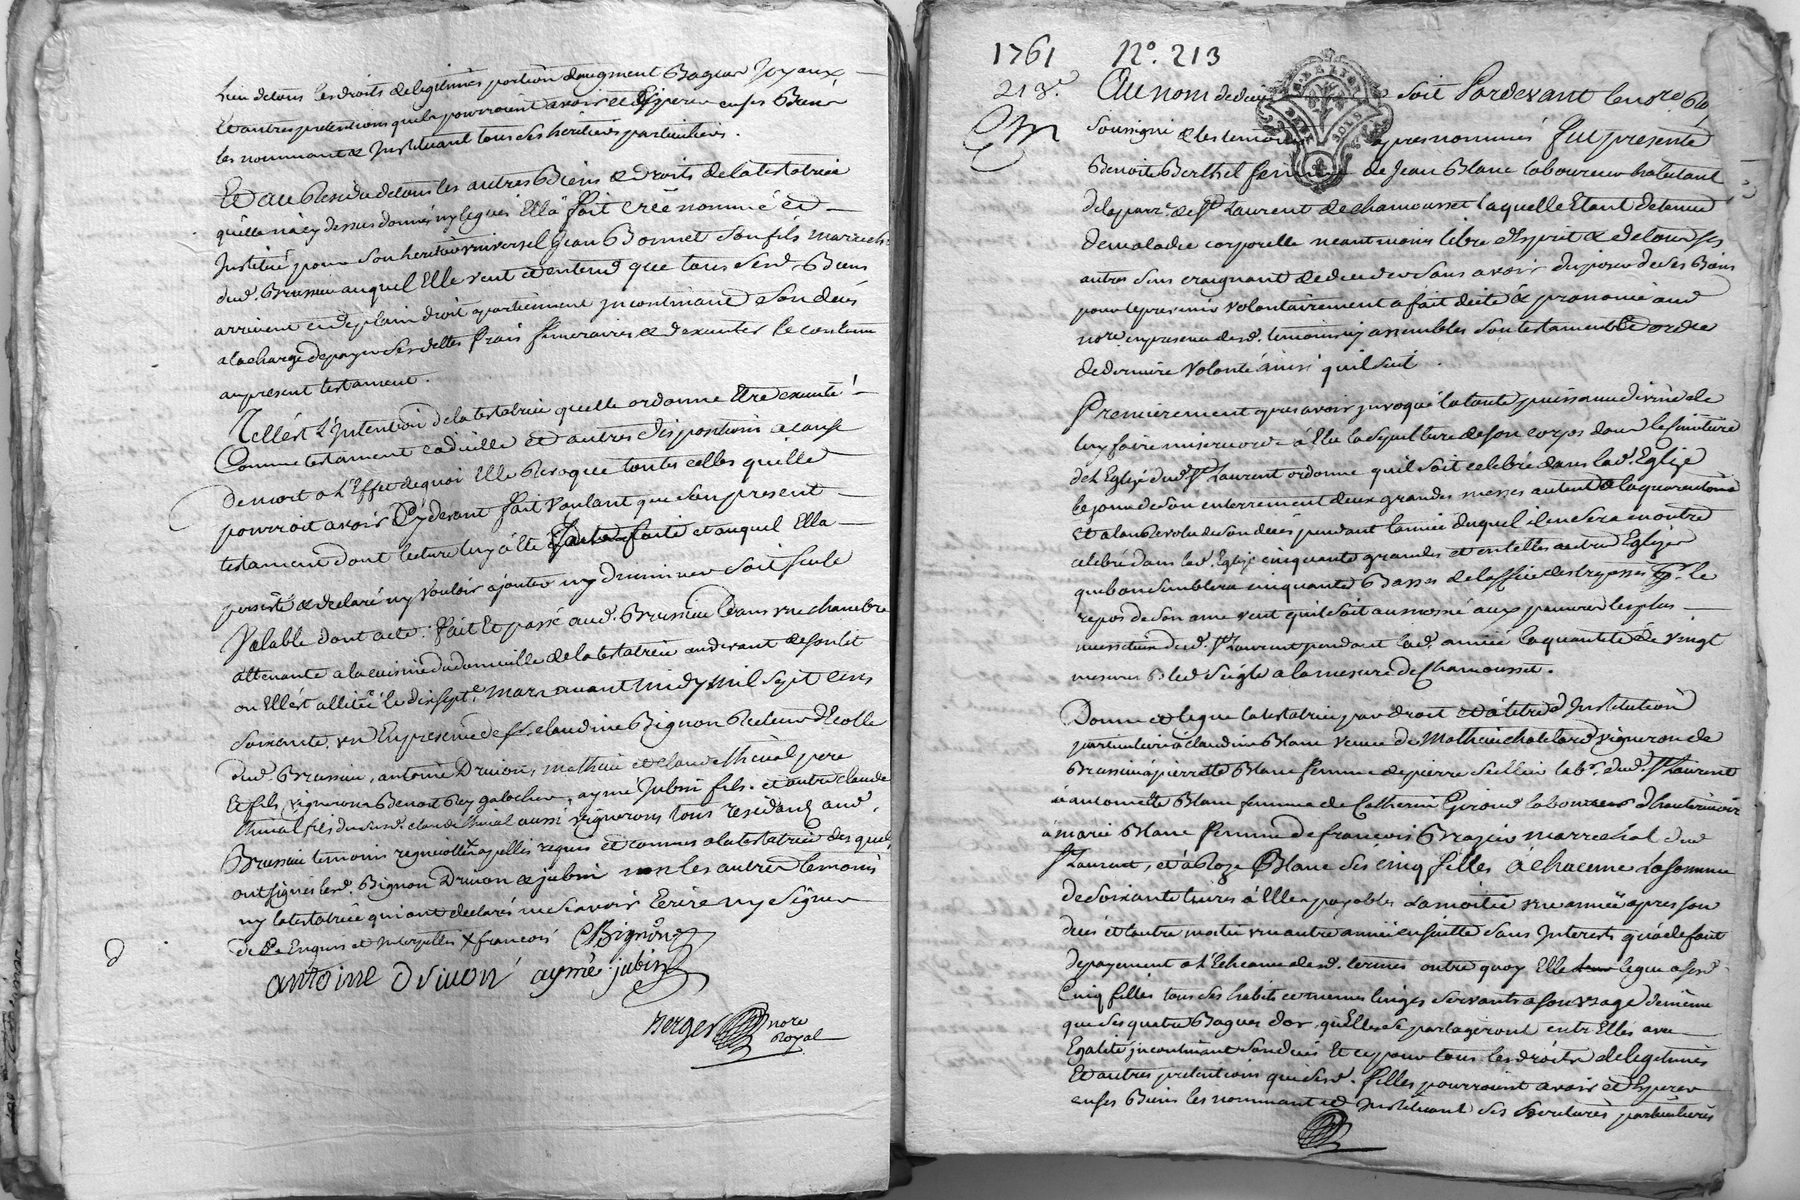 Lieu de tous les droits de legitimes portion daugment Bagues Joyaux
Et autres pretentions quils pourroient avoir et Esperer en ses Biens
les nommant et Instituant tous ses heritiers particuliers.
Et au Residu de tous les autres Biens et Droits de la testatrice
quelle na cy dessus donnés ny legués Ella fait créé nommé et
Institué pour son heritier universel Jean Bonnet son fils marechal
dud. Brussieu auquel Elle veut et entend que tous sesd. Biens
arrivent et de plain droit apartiennent incontinant son decés
a la charge de payer ses dettes frais funeraires et dexecuter le contenu
au present testament.
Tell'est L'Intention de la testatrice quelle ordonne Etre executé
Comme testament codicille et autres dispositions a cause
De mort a L'Effet de quoi Elle Revoque toutes celles quelle
pourroit avoir Cy devant fait voulant que son present
testament dont lecture luy a eté faite et auquel Ella
persisté et declaré ny vouloir ajouter ny diminuer soit seule
Valable dont acte. Fait Et passé aud. Brussieu dans une chambre
attenante a la cuisine du domicille de la testatrice au devant de son lit
ou Ell'est allitée le dixsept.e mars avant midy Mil sept cens
Soixante un En presence de sr. claudine Bignon Recteur d'Ecolle
dud. Brussieu, antoine Drivon, Mathieu et claude thival pere
Et fils, vignerons Benoit Rey galochier, aymé Jubin fils. et autre claude
thival fils dud. claude thival aussi vignerons tous residans aud.
Brussieu temoins apellés requis et connus a la testatrice des quels
ont signés lesd. Bignon Drivon et jubin non les autres temoins
ny la testatrice qui ont declarés ne sçavoir Ecrire ny signer
de Ce Enquis et Interpellés X francois CBignon
antoine drivon aymé jubin
Berger nore
Royal
1761 N°. 213
213.e Au nom de dieu soit Pardevant le nore Roy.
soussigné et les temoins apres nommés fut presente
Benoite Berthet femme de Jean Blanc laboureur habitant
de la parr.e de St. Laurent de chamousset laquelle Etant detenue
de maladie corporelle neantmoins libre d'Esprit et de tous ses
autres sens craignant de deceder sans avoir disposer de ses Biens
pour le prevenir volontairement a fait dicté et prononcé aud
nore. en presence desd. temoins cy assemblés son testament et ordre
de derniere Volonté ainsi quil suit.
Premierement apres avoir invoqué la toute puissance divine de
luy faire misericorde a Elu la sepulture de son corps dans le cimitiere
de L'Eglise dud. St. Laurent ordonne qu'il soit celebré dans lad. Eglise
le jour de son enterrement deux grandes messes autant a la quarentaine
Et a l'an Revolu de son deces pendant l'année duquel il en sera en outre
celebré dans lad. Eglise cinquante grandes et en telles autres Eglises
que bon semblera cinquante Basses de l'office des trepassés pr. le
repos de son ame veut quil soit aumosné aux pauvres les plus
necessiteux dud. St. Laurent pendant lad. année la quantité de vingt
mesures Bled seigle a la mesure de Chamousset.
Donne et legue la testatrice par droit et a titre d'Institution
particuliere a claudine Blanc veuve de Mathieu chatelard vigneron de
Brussieu a pierrette Blanc femme de pierre Seillier lab.r dud. St. Laurent
a antoinette Blanc femme de Catherin Giroud laboureur d'hauterivoir
a marie Blanc femme de francois Brazier marrechal dud
St Laurent, et a Roze Blanc ses cinq filles à chacune la somme
de soixante livres a Elles payables la moitié une année apres son
décés et l'autre moitié une autre année en suitte sans Interests qu'a defaut
de payement a l'Echeance desd. termes outre quoy Elle legue a sesd.
Cinq filles tous ses habits et menus linges servants a son usage de même
que ses quatre Bagues d'or, qu'Elles se partageront entr'Elles avec
Egalité incontinant son décés Et ce pour tous les droits de legitimes
Et autres pretentions que sesd. filles pourroient avoir et Esperer
en ses Biens les nommant et Instituant ses heritieres particulieres